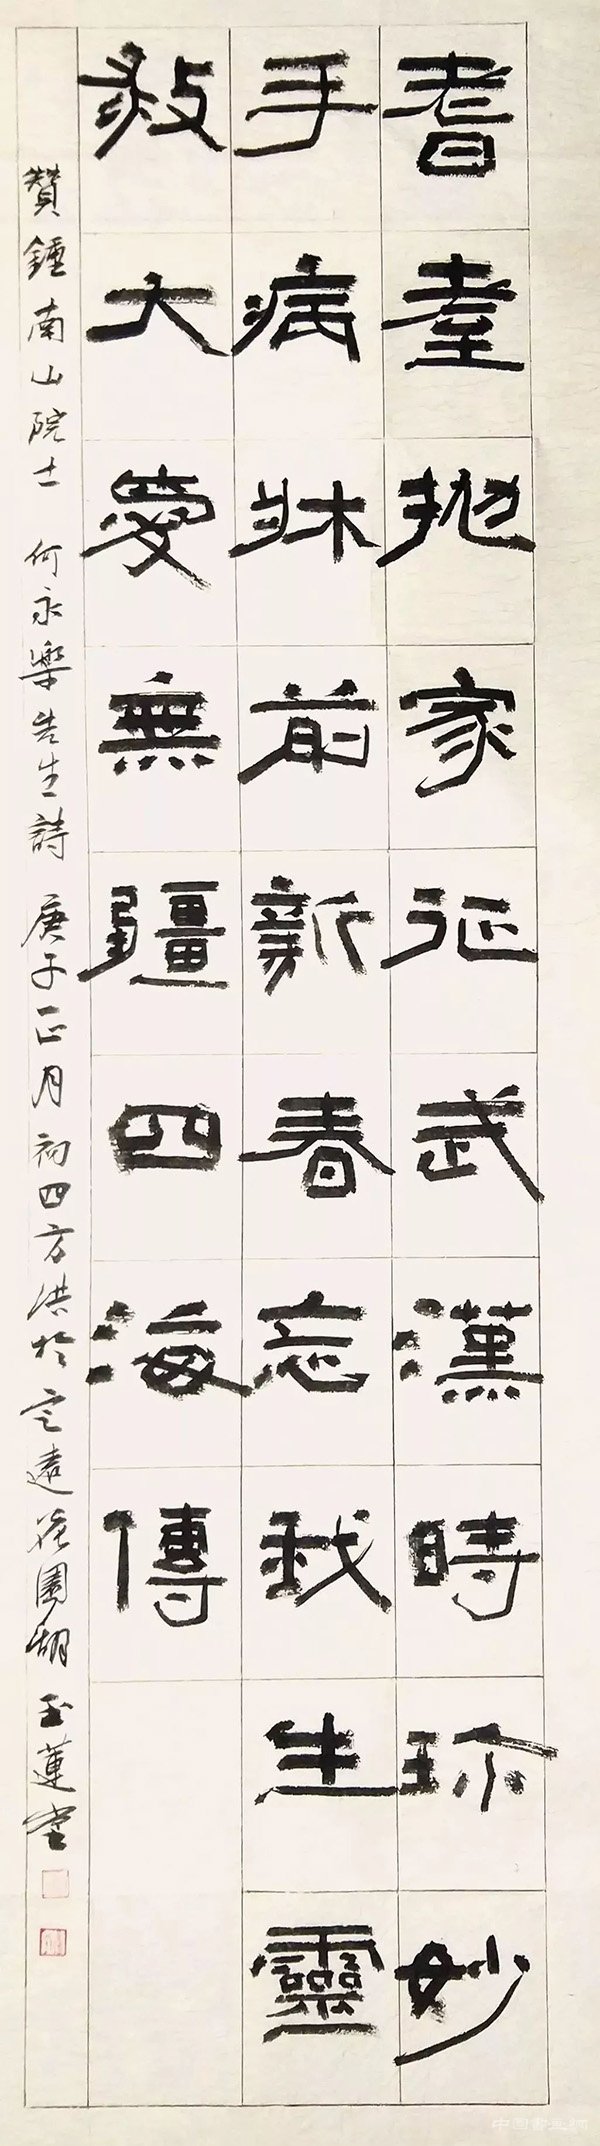 耆耋抛家征武漢時珍妙
手病牀前新春忘我生靈
救大愛無疆四海傳
贊鍾南山院士 何永樂先生詩 庚子正月初四方洪於定遠花園湖玉蓮堂